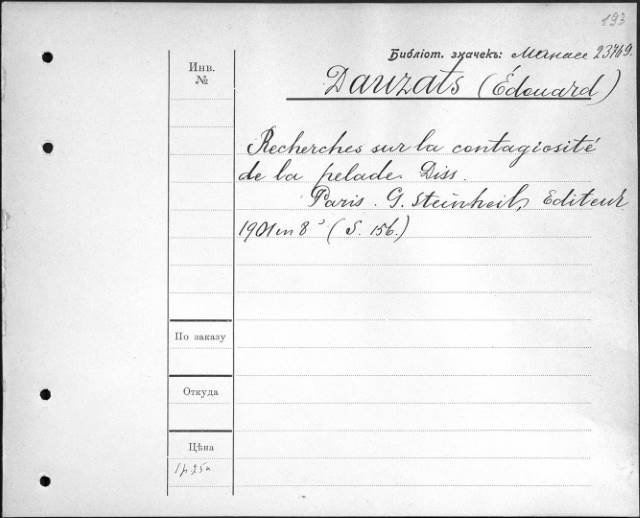 193
Библіот. значекъ: Манасе 23769.
Инв.
№
Dauzats (Édouard)
Recherches sur la contagiosité
de la pelade. Diss.
Paris. G. Steinheil, Editeur
1901 in 8° (S. 156.)
По заказу
Откуда
Цѣна
1 р. 25 к